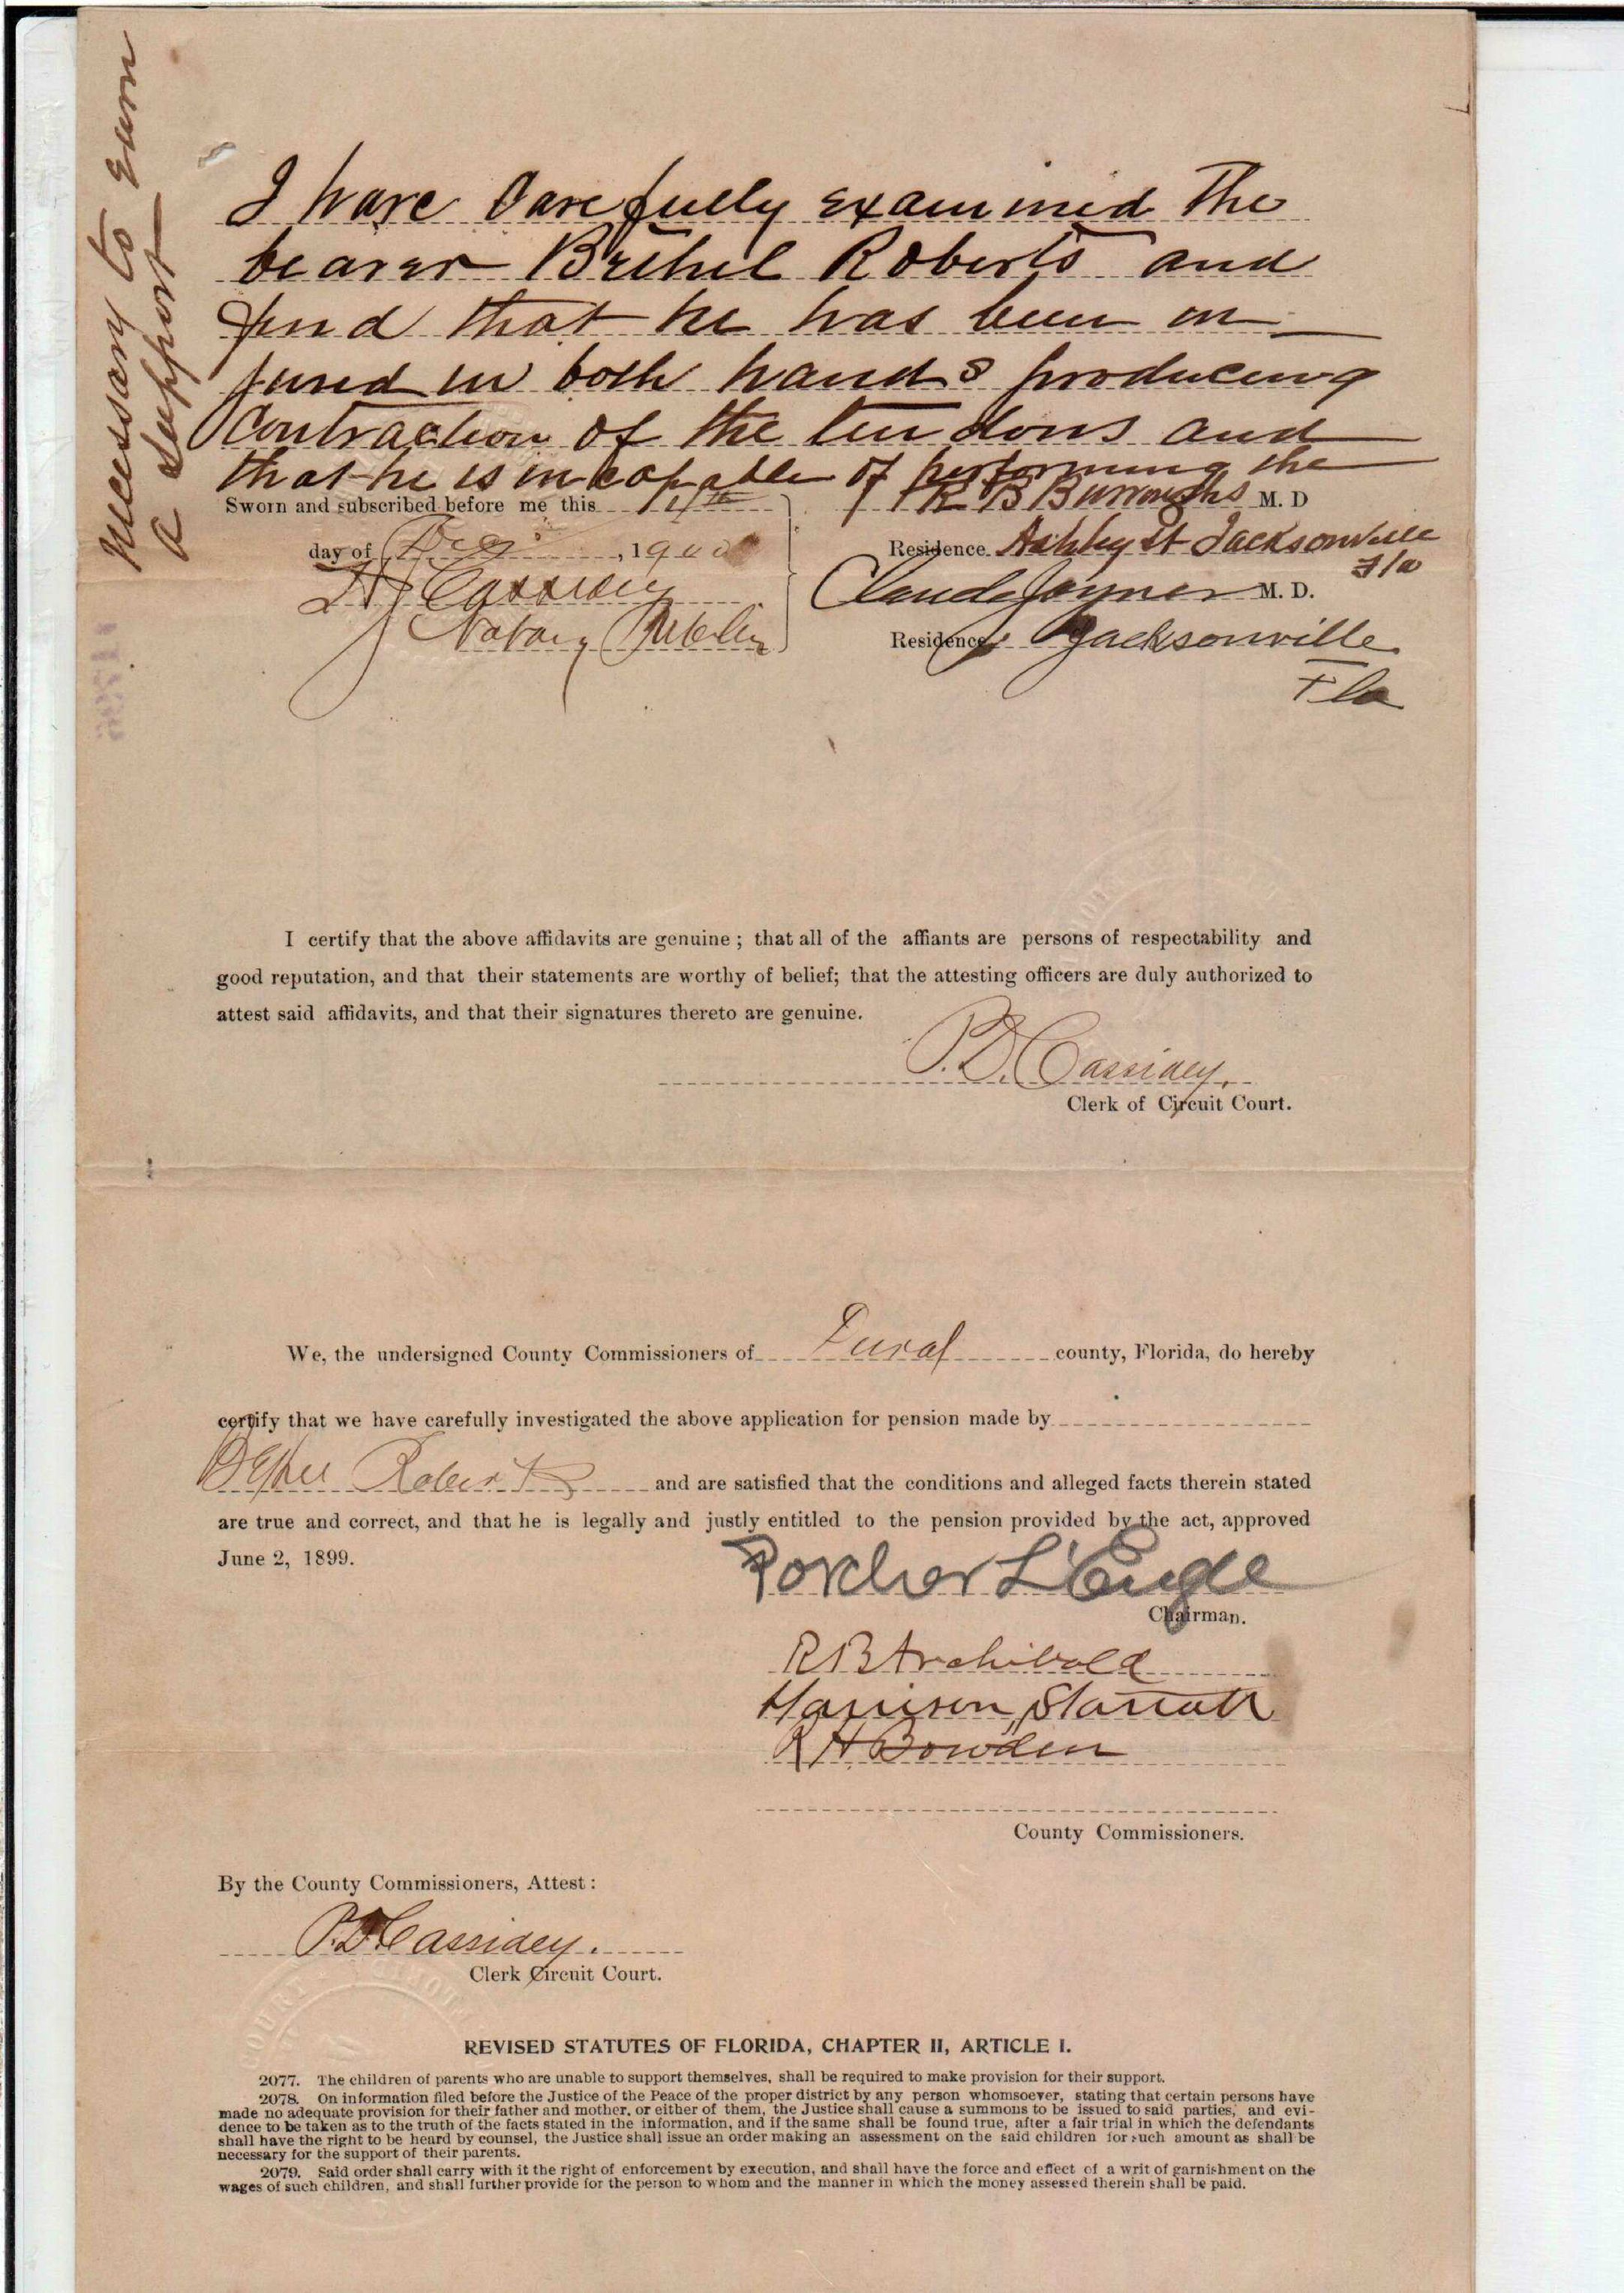 I have Carefully examined The
bearer Bethel Roberts and
find that he has been in
jured in both hands producing
Contraction of the tendons and
that he is incapable of performing the
necessary to earn
a support
Sworn and subscribed before me this 14th
day of Dec, 1900
H J Cassidey
Notary Public
R B Burroughs M. D
Residence Ashley St Jacksonville
Fla
Claude Joyner M. D.
Residence Jacksonville
Fla
I certify that the above affidavits are genuine ; that all of the affiants are persons of respectability and
good reputation, and that their statements are worthy of belief; that the attesting officers are duly authorized to
attest said affidavits, and that their signatures thereto are genuine.
P.D. Cassidey.
Clerk of Circuit Court.
We, the undersigned County Commissioners of Duval county, Florida, do hereby
certify that we have carefully investigated the above application for pension made by
Bethel Roberts and are satisfied that the conditions and alleged facts therein stated
are true and correct, and that he is legally and justly entitled to the pension provided by the act, approved
June 2, 1899.
Porcher L'Engle
Chairman.
R B Archibald
Harrison Starratt
R H Bowden
County Commissioners.
By the County Commissioners, Attest :
P.D. Cassidey.
Clerk Circuit Court.
REVISED STATUTES OF FLORIDA, CHAPTER II, ARTICLE I.
2077. The children of parents who are unable to support themselves, shall be required to make provision for their support.
2078. On information filed before the Justice of the Peace of the proper district by any person whomsoever, stating that certain persons have
made no adequate provision for their father and mother, or either of them, the Justice shall cause a summons to be issued to said parties, and evi-
dence to be taken as to the truth of the facts stated in the information, and if the same shall be found true, after a fair trial in which the defendants
shall have the right to be heard by counsel, the Justice shall issue an order making an assessment on the said children for such amount as shall be
necessary for the support of their parents.
2079. Said order shall carry with it the right of enforcement by execution, and shall have the force and effect of a writ of garnishment on the
wages of such children, and shall further provide for the person to whom and the manner in which the money assessed therein shall be paid.